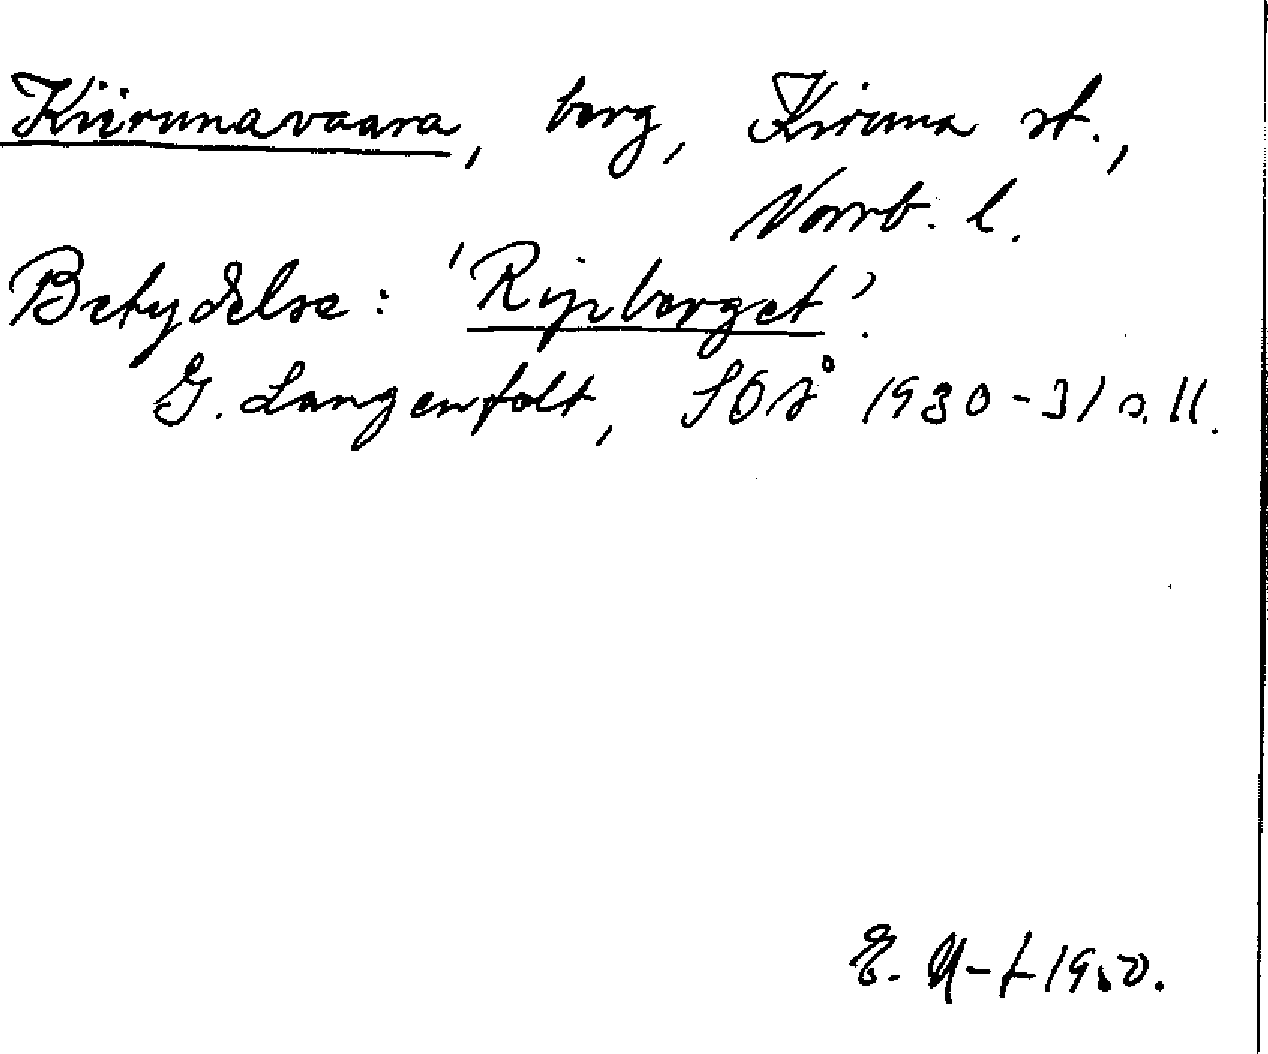 Kiirunavaara, berg, Kiruna st.,
Norrb. l.
Betydelse: 'Ripberget'.
G. Langenfelt, SOÅ 1930-31 s. 11.
E. 1950.